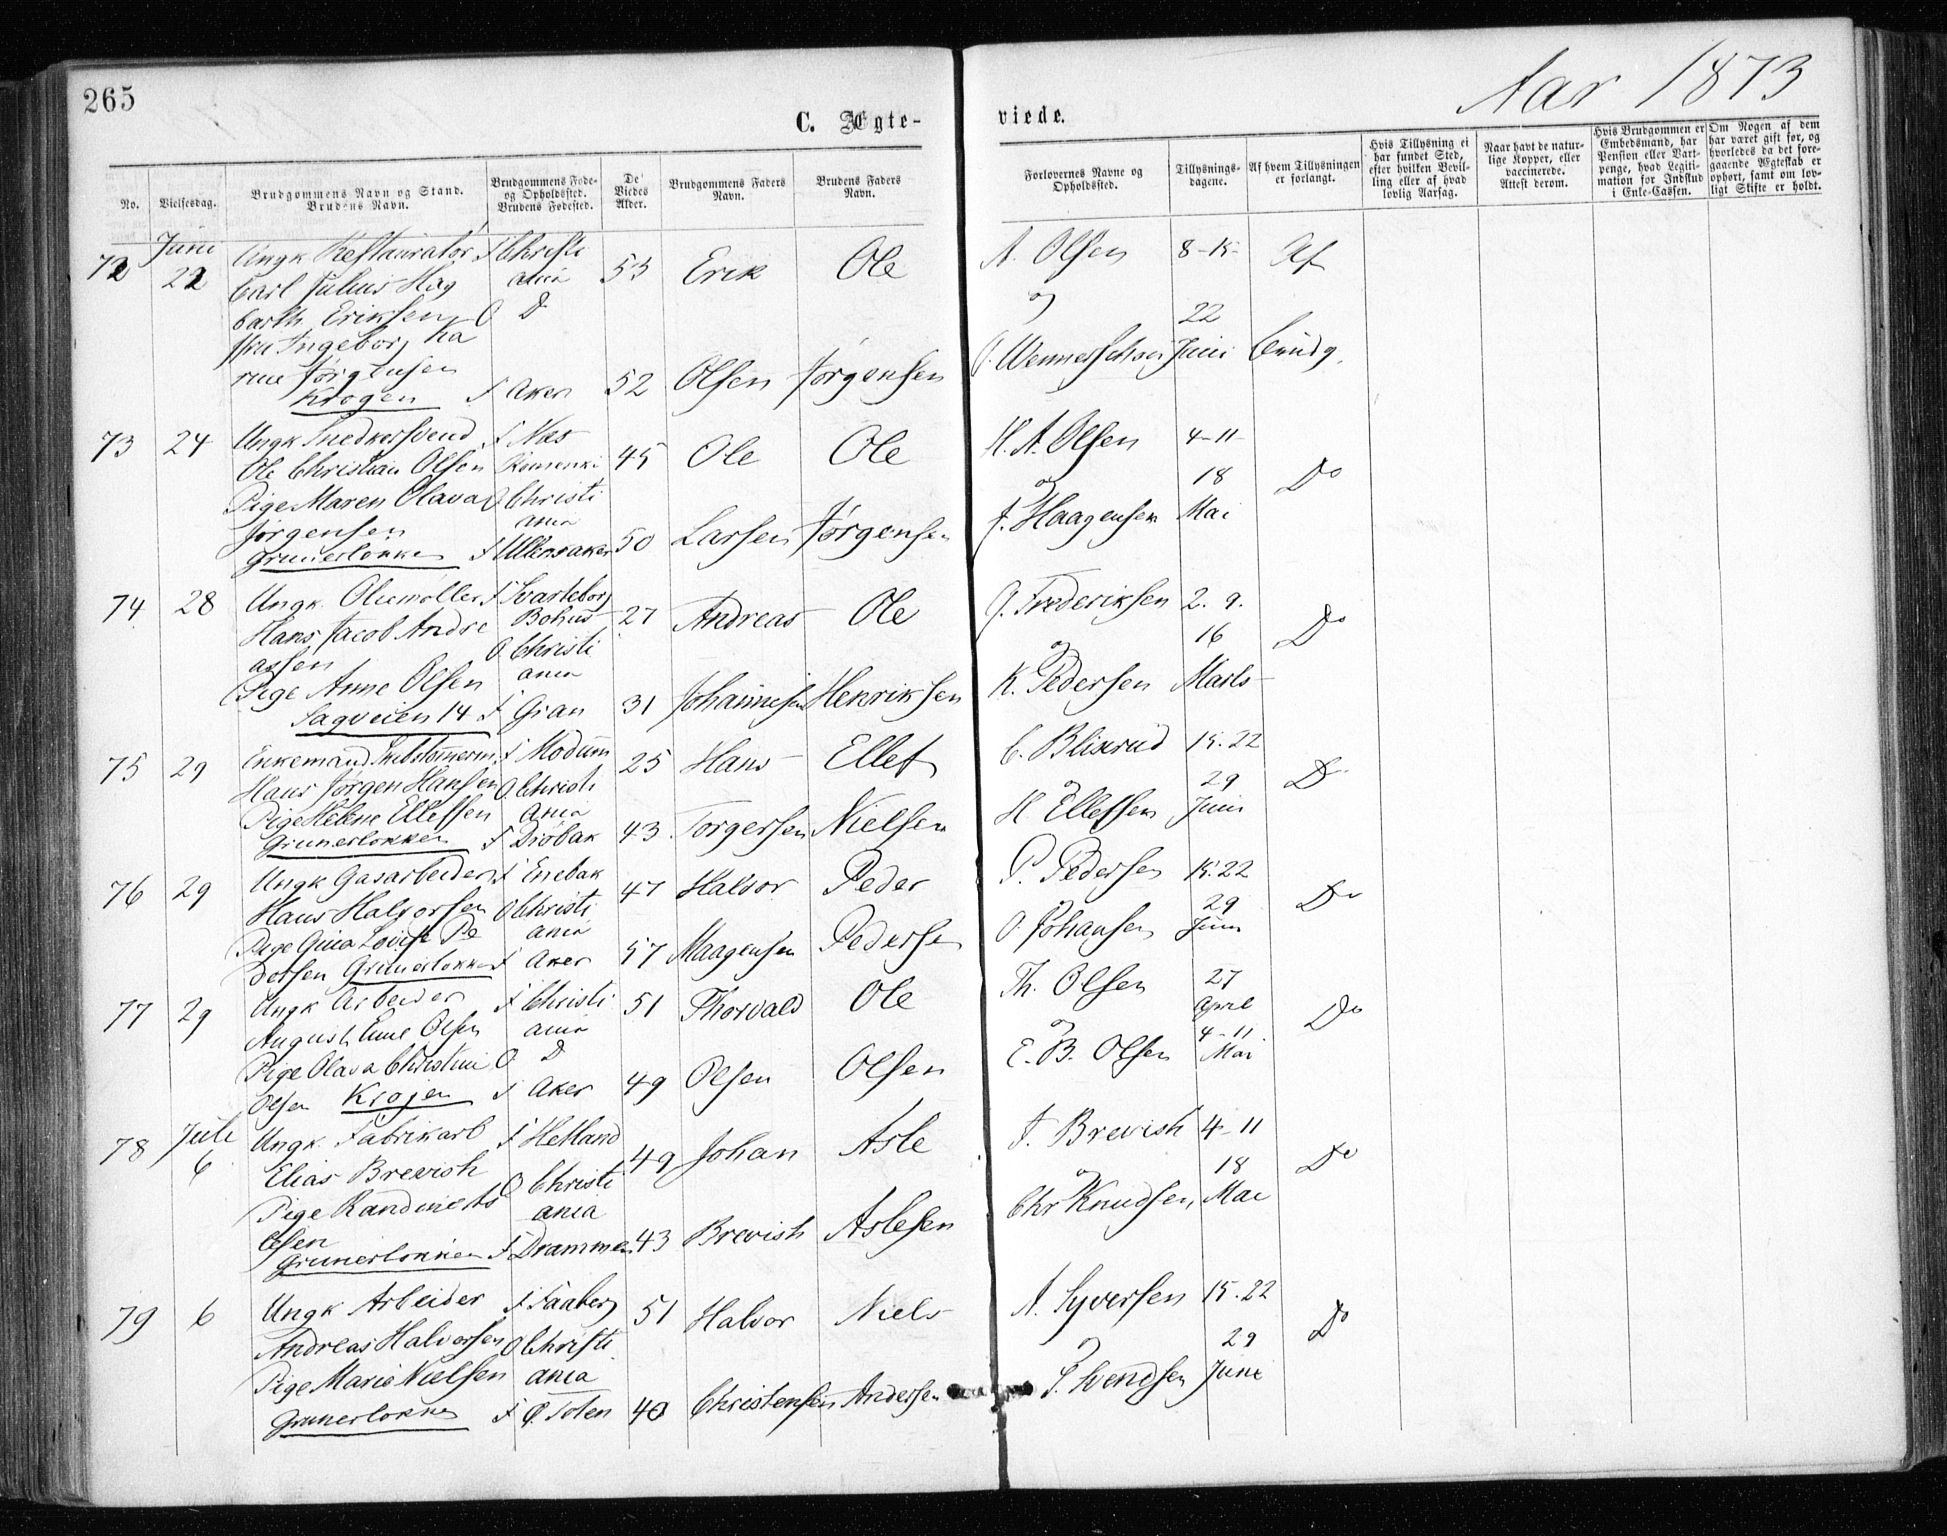 265
Aar 1873
C. Ægte-
viede.
No.
Vielsesdag.
Brudgommens Navn og Stand.
Brudens Navn.
Brudgommens Føde-
og Opholdssted.
Brudens Fødested.
De
Viedes
Alder.
Brudgommens Faders
Navn.
Brudens Faders
Navn.
Forlovernes Navne og
Opholdssted.
Tillysnings-
dagene.
Af hvem Tillysningen
er forlangt.
Hvis Tillysning ei
har fundet Sted,
efter hvilken Bevil-
ling eller af hvad
lovlig Aarsag.
Naar havt de natur-
lige Kopper, eller
vaccinerede.
Attest derom.
Hvis Brudgommen er
Embedsmand, har
Pension eller Vart-
penge, hvad Legiti-
mation for Indskud
i Enke-Cassen.
Om Nogen af dem
har været gift før, og
hvorledes da det fore-
gaaende Ægteskab er
ophørt, samt om lov-
ligt Skifte er holdt.
72 Juni 22
Ungk Restauratør
Carl Julius Hag
barth Eriksen
Ingeborg Ka
rine Jørgensen
Krogen
F Christi
ania
O D
F Aker
53
52
Erik
Olsen
Ole
Jørgensen
A. Olsen
og
8-15-
22
Juni
Af
Brudg.
73 24
Ungk Snedkersvend
Ole Christian Olsen
Pige Maren Olava
Jørgensen
Grunerløkken
F Næs
Romerike
O Christi
ania
F Ullensaker
45
50
Ole
Larsen
Ole
Jørgensen
H. A. Olsen
og
J. Haagensen
4-11-
18
Mai
Do
74 28
Ungk. Oliemøller
Hans Jacob Andre
assen
Pige Anne Olsen
Sagveien 14
F Svarteborg
Bohus
O. Christi
ania
F Gran
27
31
Andreas
Johannesen
Ole
Henriksen
G. Frederiksen
og
K. Pedersen
2. 9.
16
Marts
Do
75 29
Enkemand Skibstømerm.
Hans Jørgen Hansen
Pige Helene Ellefsen
Grunerløkken
F Modum
O. Christi
ania
F Drøbak
25
43
Hans
Torgersen
Ellef
Nielsen
C. Blixrud
og
H Ellefsen
15. 22
29
Juni
Do
76 29
Ungk Gasarbeider
Hans Halvorsen
Pige Gina Lovise Pe
dersen Grunerløkken
F Enebak
O Christi
ania
F Aker
47
57
Halvor
Maagensen
Peder
Pedersen
P. Pedersen
og
O. Johansen
15. 22
29
Juni
Do
77 29
Ungk Arbeider
August Emil Olsen
Pige Olava Christine
Olsen Krogen
F Christi
ania
O D
F Aker
51
49
Thorvald
Olsen
Ole
Olsen
Th. Olsen
og
E. B. Olsen
27
April
4-11
Mai
Do
78 Juli 6
Ungk. Fabrikarb
Elias Brevish
Pige Randine As
lesen
Grunerløkken
F Hetland
O Christi
ania
F Drammen
49
43
Johan
Brevish
Asle
Aslesen
J. Brevish
og
Chr Knudsen
4-11
18
Mai
Do
79 6
Ungk Arbeider
Andreas Halvorsen
Pige Marie Nielsen
Grunerløkken
F Faaberg
O Christi
ania
F Ø. Toten
51
40
Halvor
Christensen
Niels
Andersen
A. Syversen
og
S. Svendsen
15. 22
29
Juni
Do